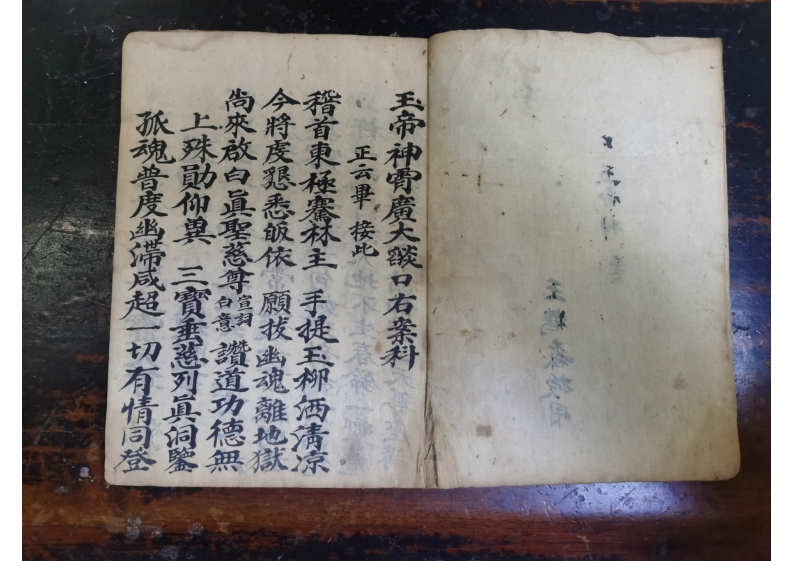 玉帝神霄廣大燄口右案科
正云畢 接此
稽首東極騫林主 手提玉柳洒清凉
今將虔懇悉皈依 願拔幽魂離地獄
尚來啟白真聖慈尊 宣詞白意 讚道功德無
上殊勛仰兾 三寶垂慈列真洞鑒
孤魂普度幽滯咸超一切有情同登